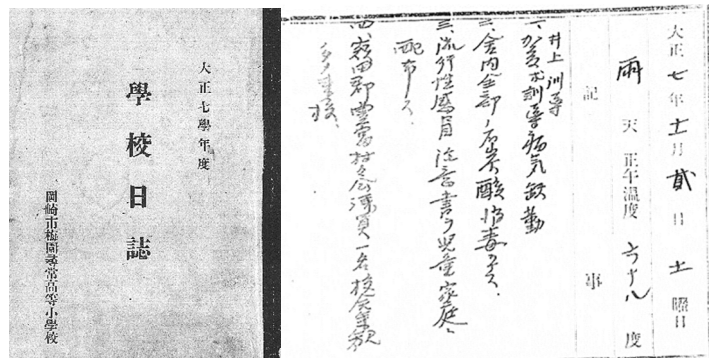 大正七學年度
學校日誌
岡崎市梅園尋常高等小學校
大正七年十一月貳日 土曜日
雨天 正午温度 六十八度
記事
井上訓導
一、訓導病気欠勤
二、舎内全部石炭酸消毒ヲナス、
三、流行性感冒注意書ヲ児童家庭ニ
配布ス、
四、額田郡豊富村会議員一名校舎参観
来校、